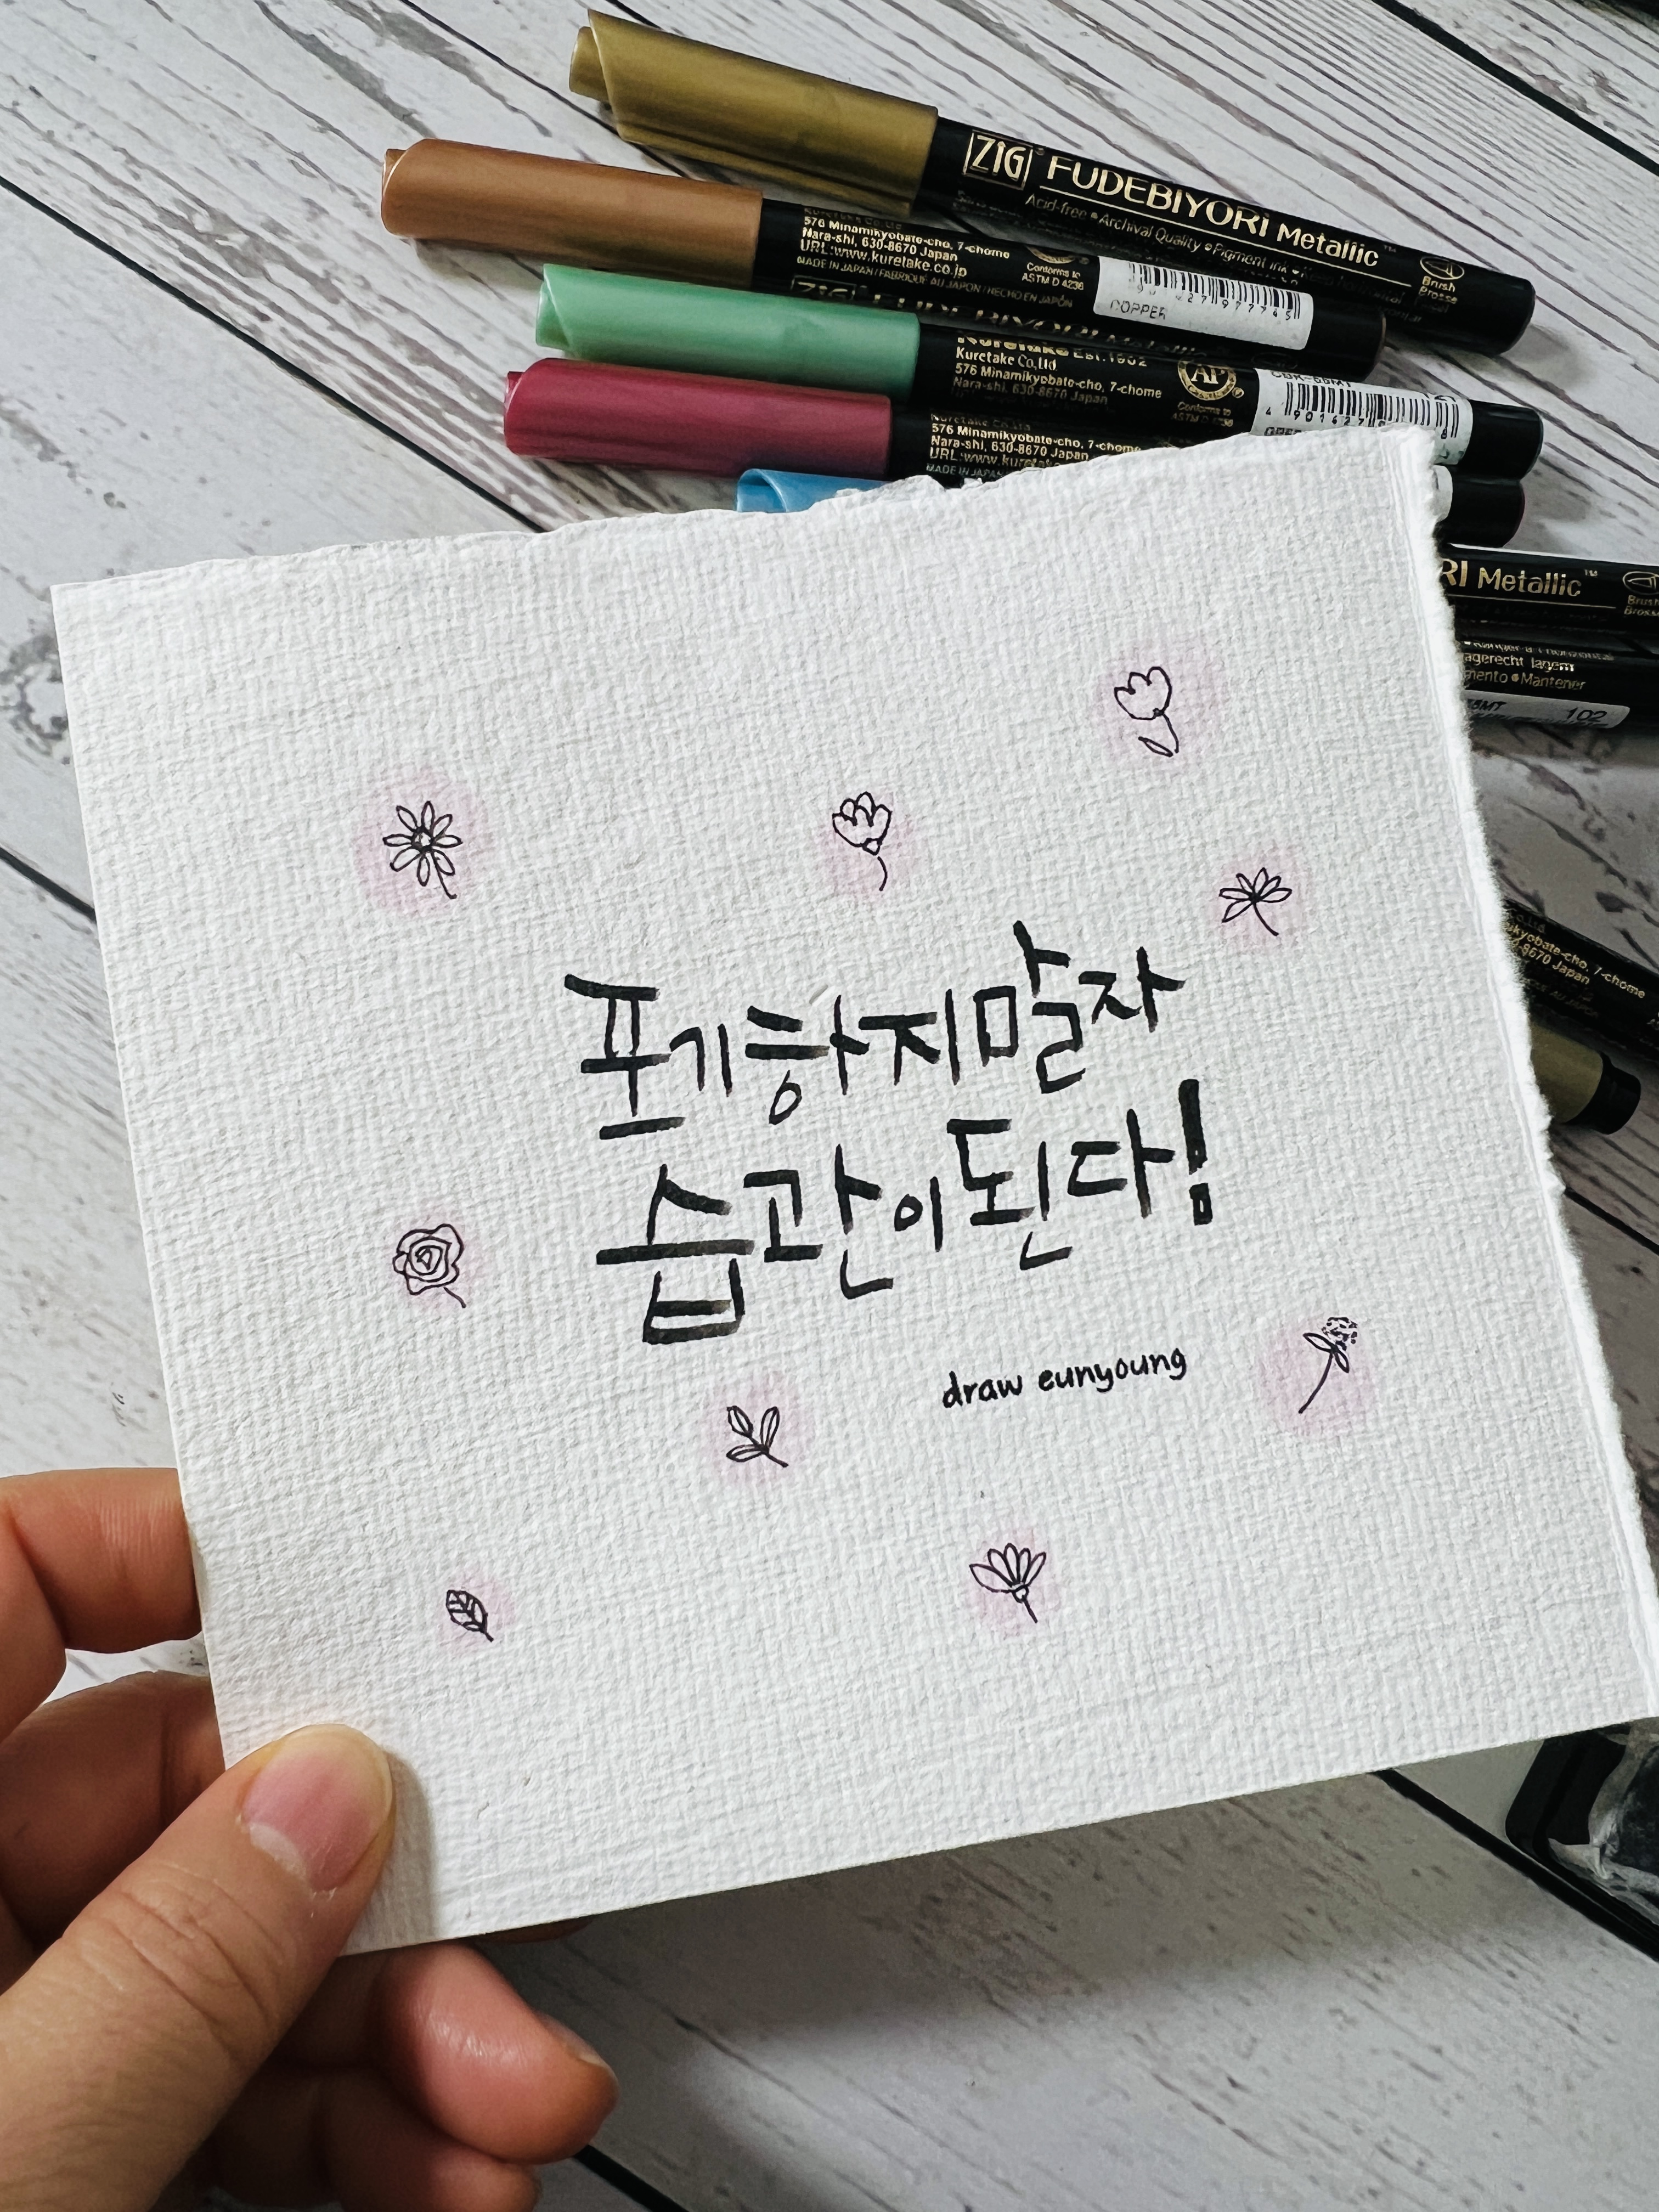 ZIG FUDEBIYORI Metallic™
Acid-free • Archival Quality • Pigment ink
Brush
Brosse
576 Minamikyobate-cho, 7-chome
Nara-shi, 630-8670 Japan
URL:www.kuretake.co.jp
MADE IN JAPAN / FABRIQUÉ AU JAPON / HECHO EN JAPÓN
Conforms to
ASTM D 4236
COPPER
Kuretake Est.1902
Kuretake Co.,Ltd
576 Minamikyobate-cho, 7-chome
Nara-shi, 630-8670 Japan
AP
Conforms to
576 Minamikyobate-cho, 7-chome
Nara-shi, 630-8670 Japan
URL:www.kuretake
MADE IN JAPAN
RI Metallic™
agerecht lagern
mento • Mantener
102
포기하지말자
습관이된다!
draw eunyoung